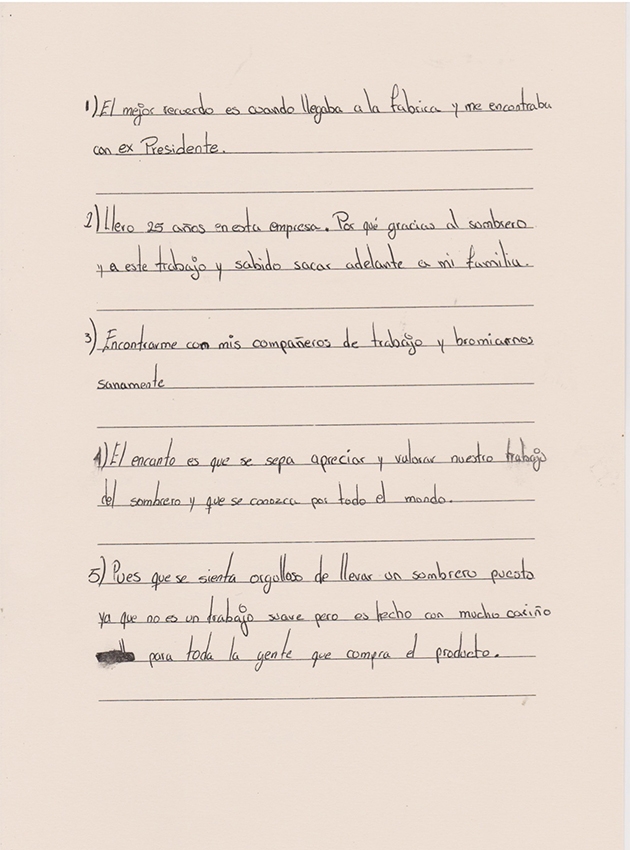 1) El mejor recuerdo es cuando llegaba a la fabrica y me encontraba
con ex Presidente.
2) Llevo 25 años en esta empresa. Por qué gracias al sombrero
y a este trabajo y sabido sacar adelante a mi familia.
3) Encontrarme con mis compañeros de trabajo y bromiarnos
sanamente
4) El encanto es que se sepa apreciar y valorar nuestro trabajo
del sombrero y que se conozca por todo el mondo.
5) Pues que se sienta orgulloso de llevar un sombrero puesto
ya que no es un trabajo suave pero es hecho con mucho cariño
para toda la gente que compra el producto.